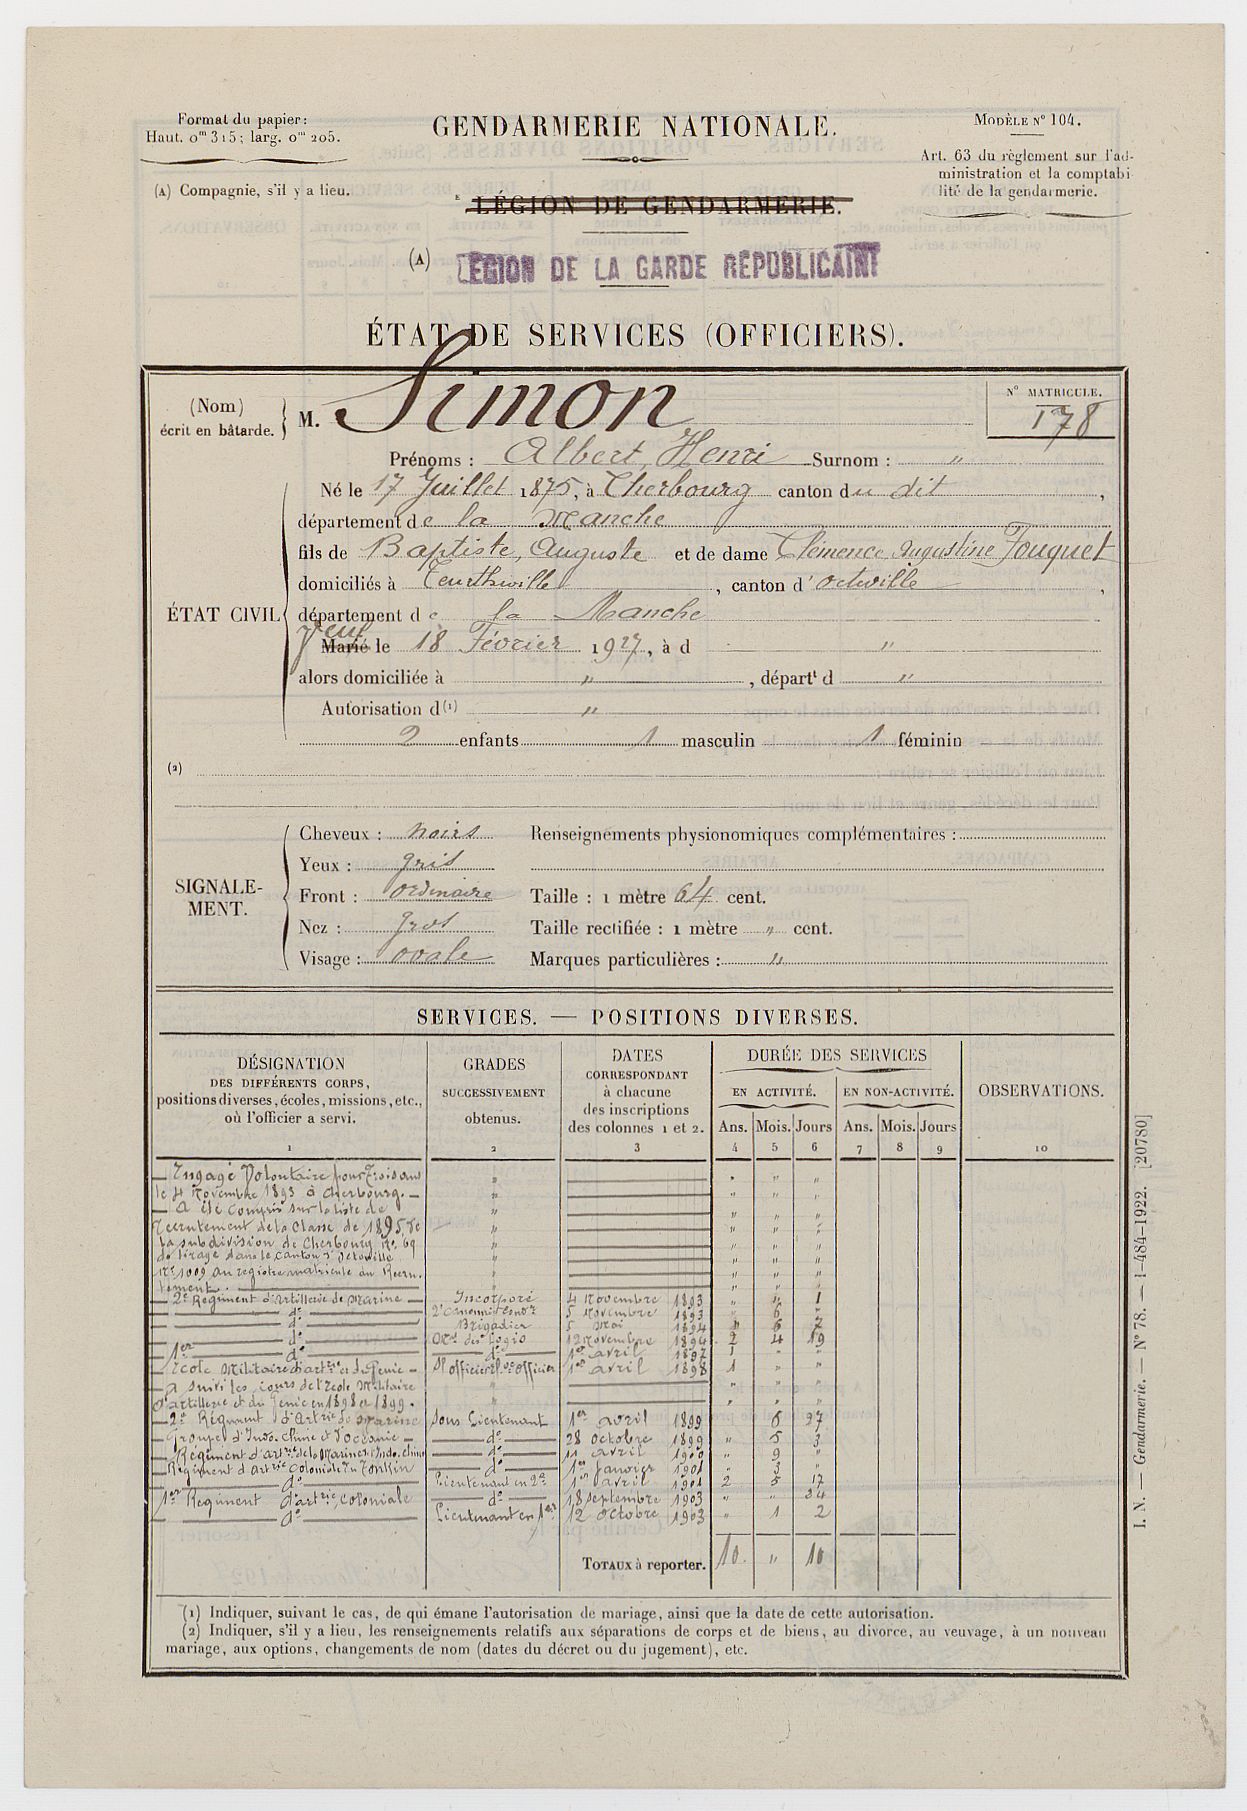 Format du papier:
Haut. 0ᵐ 315; larg. 0ᵐ 205.
(A) Compagnie, s'il y a lieu.
GENDARMERIE NATIONALE.
Modèle N° 104.
Art. 63 du règlement sur l'ad-
ministration et la comptabi
lité de la gendarmerie.
ᴱ LÉGION DE GENDARMERIE.
(A) LEGION DE LA GARDE REPUBLICAINE
ÉTAT DE SERVICES (OFFICIERS).
(Nom)
écrit en bâtarde.
M. Simon
N° MATRICULE.
178
Prénoms : Albert, Henri Surnom : "
ÉTAT CIVIL
Né le 17 Juillet 1875, à Cherbourg canton du dit,
département de la Manche
fils de Baptiste, Auguste et de dame Clémence Augustine Fouquet
domiciliés à Teurthéville, canton d'Octeville,
département de la Manche
Veuf
Marié le 18 Février 1927, à d "
alors domiciliée à ", départᵗ d "
Autorisation d(1) "
2 enfants 1 masculin 1 féminin
(2)
SIGNALE-
MENT.
Cheveux : noirs Renseignements physionomiques complémentaires :
Yeux : gris
Front : ordinaire Taille : 1 mètre 64 cent.
Nez : gros Taille rectifiée : 1 mètre " cent.
Visage : ovale Marques particulières : "
SERVICES. — POSITIONS DIVERSES.
DÉSIGNATION
DES DIFFÉRENTS CORPS,
positions diverses, écoles, missions, etc.,
où l'officier a servi.
GRADES
SUCCESSIVEMENT
obtenus.
DATES
CORRESPONDANT
à chacune
des inscriptions
des colonnes 1 et 2.
DURÉE DES SERVICES
EN ACTIVITÉ. EN NON-ACTIVITÉ.
Ans. Mois. Jours Ans. Mois. Jours
OBSERVATIONS.
1 2 3 4 5 6 7 8 9 10
Engagé Volontaire pour Trois ans " " "
le 4 Novembre 1893 à Cherbourg. — " " "
A été compris sur la liste de " " "
recrutement de la Classe de 1895 de " " "
la subdivision de Cherbourg N° 69 " " "
de tirage dans le canton d'Octeville " " "
N° 1009 au registre matricule du Recru- " " "
tement. " " "
2ᵉ Régiment d'Artillerie de Marine — Incorporé 4 Novembre 1893 " " 1
dᵒ 2ᵉ Canonnier Condʳ 5 Novembre 1893 " 6 "
dᵒ Brigadier 5 Mai 1894 " 6 7
dᵒ Mᵃˡ des Logis 12 Novembre 1894 2 4 19
1ᵉʳ dᵒ dᵒ 1ᵉʳ avril 1897 1 " "
Ecole Militaire d'artⁱᵉ et du Génie — 1ᵉʳ avril 1898 1 " "
A suivi les cours de l'Ecole Militaire " " "
d'artillerie et du Génie en 1898 et 1899. " " "
2ᵉ Régiment d'Artⁱᵉ de Marine Sous Lieutenant 1ᵉʳ avril 1899 " 6 27
Groupe d'Indo-Chine et d'océanie — dᵒ 28 octobre 1899 " 5 3
Régiment d'artⁱᵉ de la Marine Indo-Chine dᵒ 11 avril 1900 " 9 "
Régiment d'Artⁱᵉ Coloniale du Tonkin dᵒ 1ᵉʳ Janvier 1901 " 3 "
dᵒ Lieutenant en 2ᵈ 1ᵉʳ avril 1901 2 5 17
1ᵉʳ Régiment d'artⁱᵉ coloniale dᵒ 18 septembre 1903 " " 24
dᵒ Lieutenant en 1ᵉʳ 12 octobre 1903 " 1 2
TOTAUX à reporter. 10 " 10
(1) Indiquer, suivant le cas, de qui émane l'autorisation de mariage, ainsi que la date de cette autorisation.
(2) Indiquer, s'il y a lieu, les renseignements relatifs aux séparations de corps et de biens, au divorce, au veuvage, à un nouveau
mariage, aux options, changements de nom (dates du décret ou du jugement), etc.
I. N. — Gendarmerie. — N° 78. — 1-484-1922. [20780]